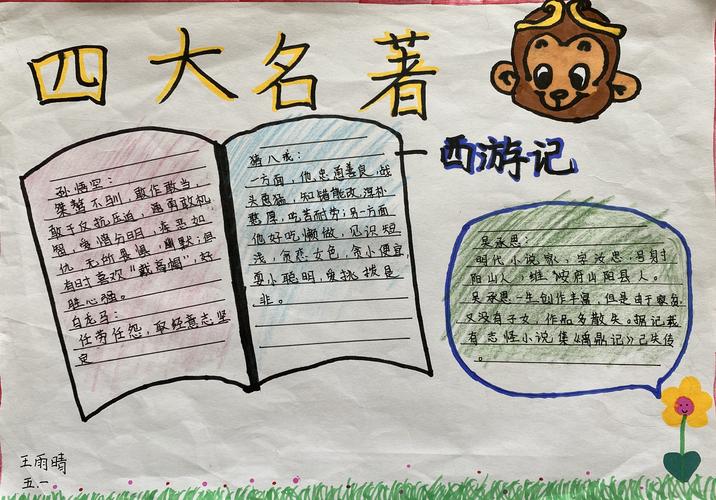 四大名著
西游记
孙悟空:
桀骜不驯,敢作敢当,
敢于反抗压迫,勇敢机
智,爱憎分明,疾恶如
仇,无所畏惧,幽默;但
有时喜欢“戴高帽”,好
胜心强。
白龙马:
任劳任怨,取经意志坚
定
猪八戒:
一方面,他忠勇善良,战
头勇猛,知错能改,淳朴
憨厚,吃苦耐劳;另一方面
他好吃懒做,见识短
浅,贪恋女色,贪小便宜,
耍小聪明,爱挑拨是
非。
吴承恩:
明代小说家,字汝忠,号射
阳山人,淮安府山阳县人。
吴承恩一生创作丰富,但是由于家贫,
又没有子女,作品多散失。据记载
有志怪小说集《禹鼎记》已失传
。
王雨晴
五.一